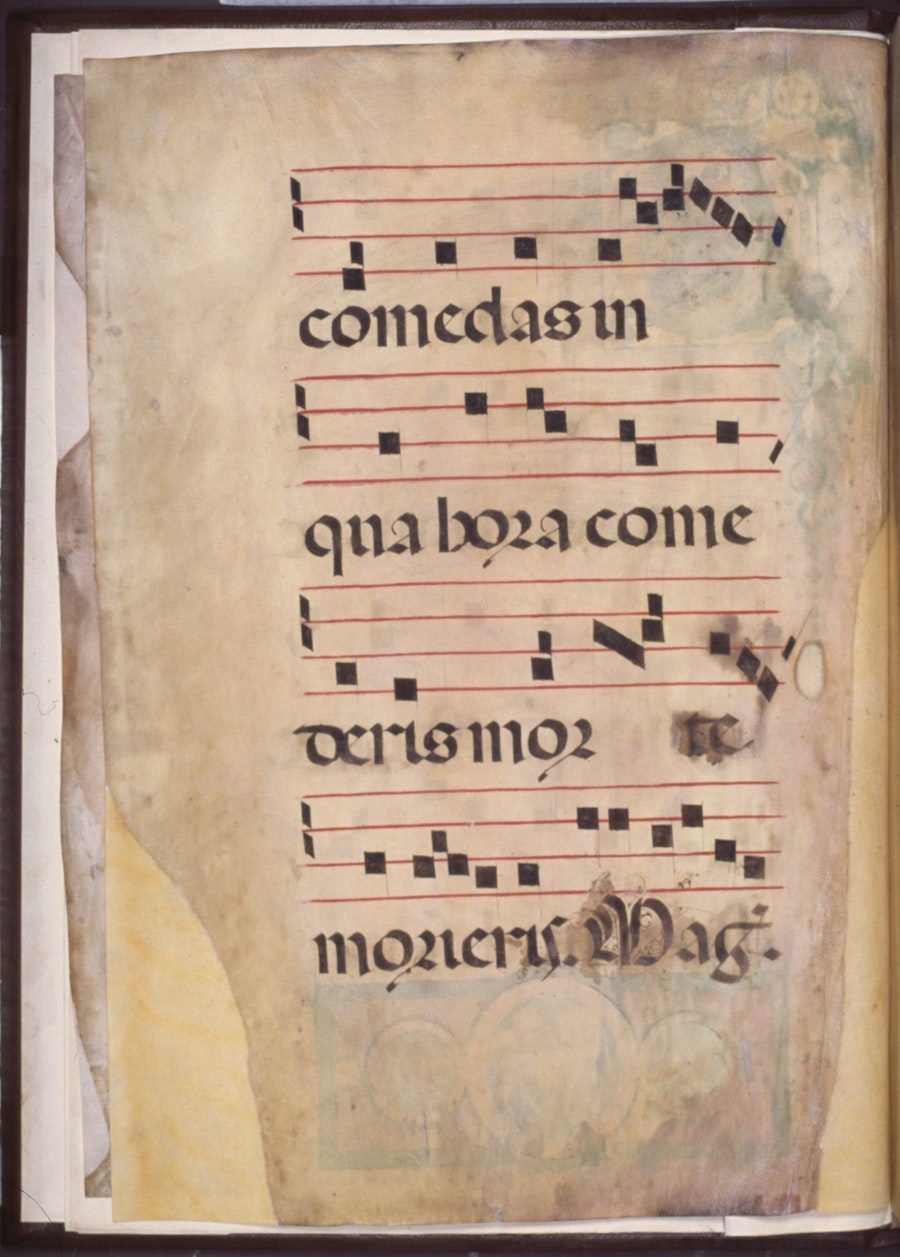 comedas in
qua hora come
deris mor te
morieris. Mag̃.